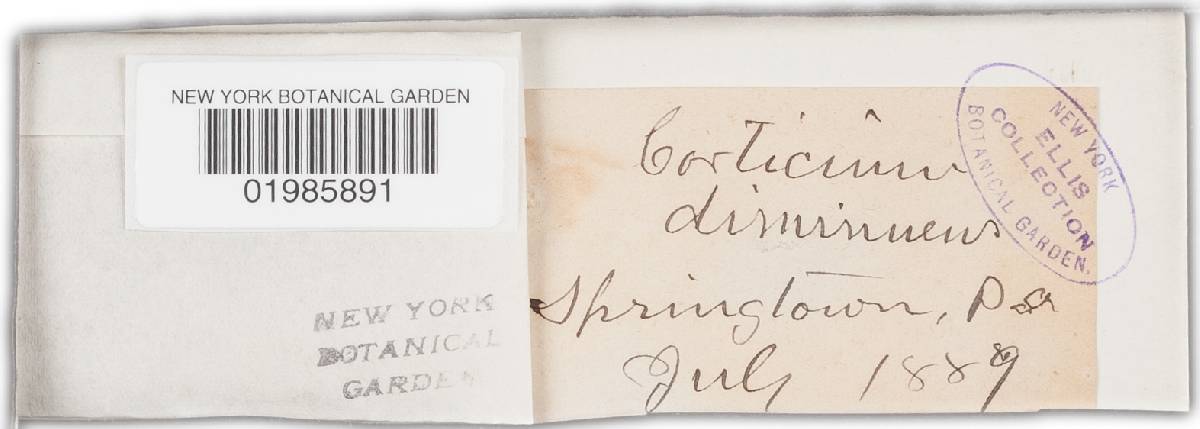 NEW YORK BOTANICAL GARDEN
01985891
NEW YORK
BOTANICAL
GARDEN
Corticium
diminuens
Springtown, Pa
July 1889
NEW YORK
ELLIS
COLLECTION
BOTANICAL GARDEN.